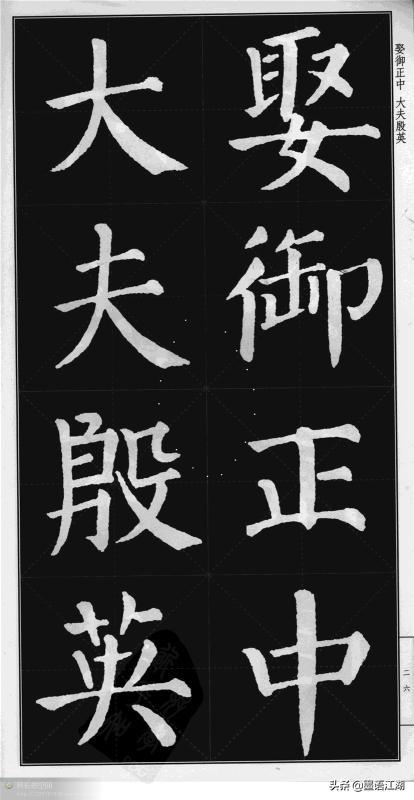 娶御正中
大夫殷英
娶御正中 大夫殷英
二六
头条 @墨语江湖